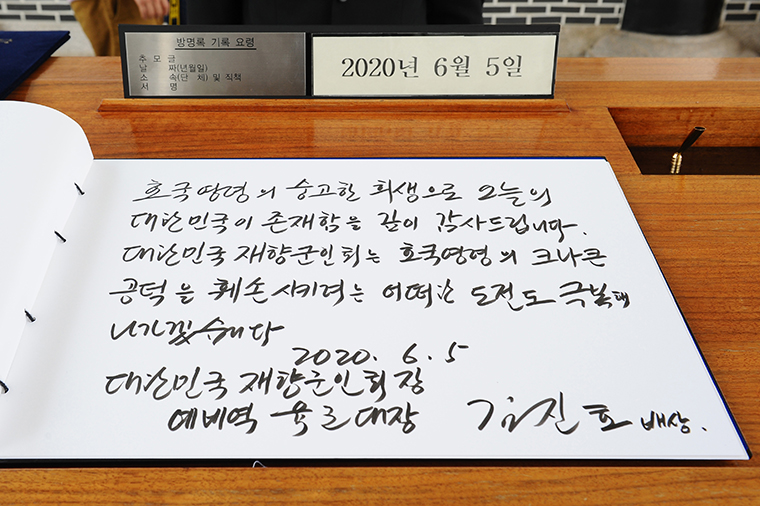 방명록 기록 요령
추 모 글
날 짜(년월일)
소 속(단 체) 및 직책
서 명
2020년 6월 5일
호국영령의 숭고한 희생으로 오늘의
대한민국이 존재함을 깊이 감사드립니다.
대한민국 재향군인회는 호국영령의 크나큰
공덕을 훼손시키려는 어떠한 도전도 극복해
나가겠습니다
2020. 6. 5
대한민국 재향군인회장
예비역 육군대장 김진호 배상.